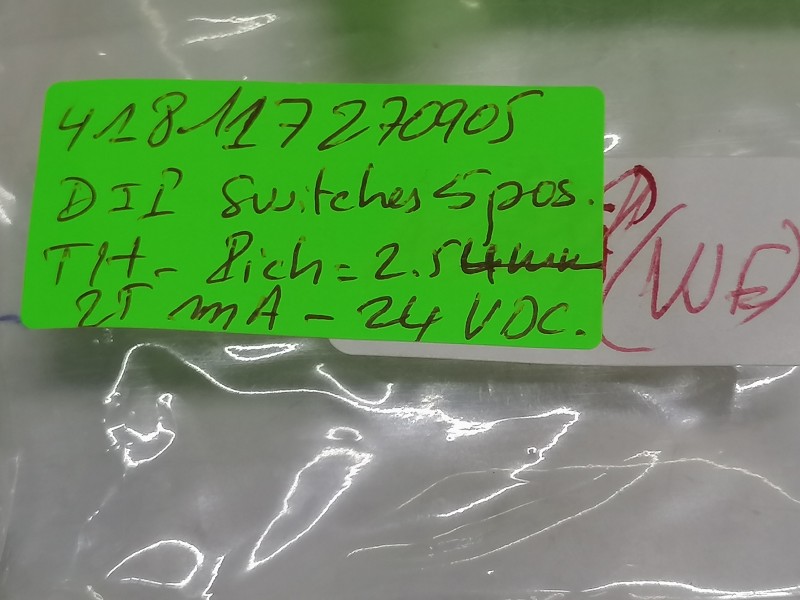 418117270905
DIP Switches 5pos.
T/H - Pich = 2.54mm
25 mA - 24 VDC.
(WE)